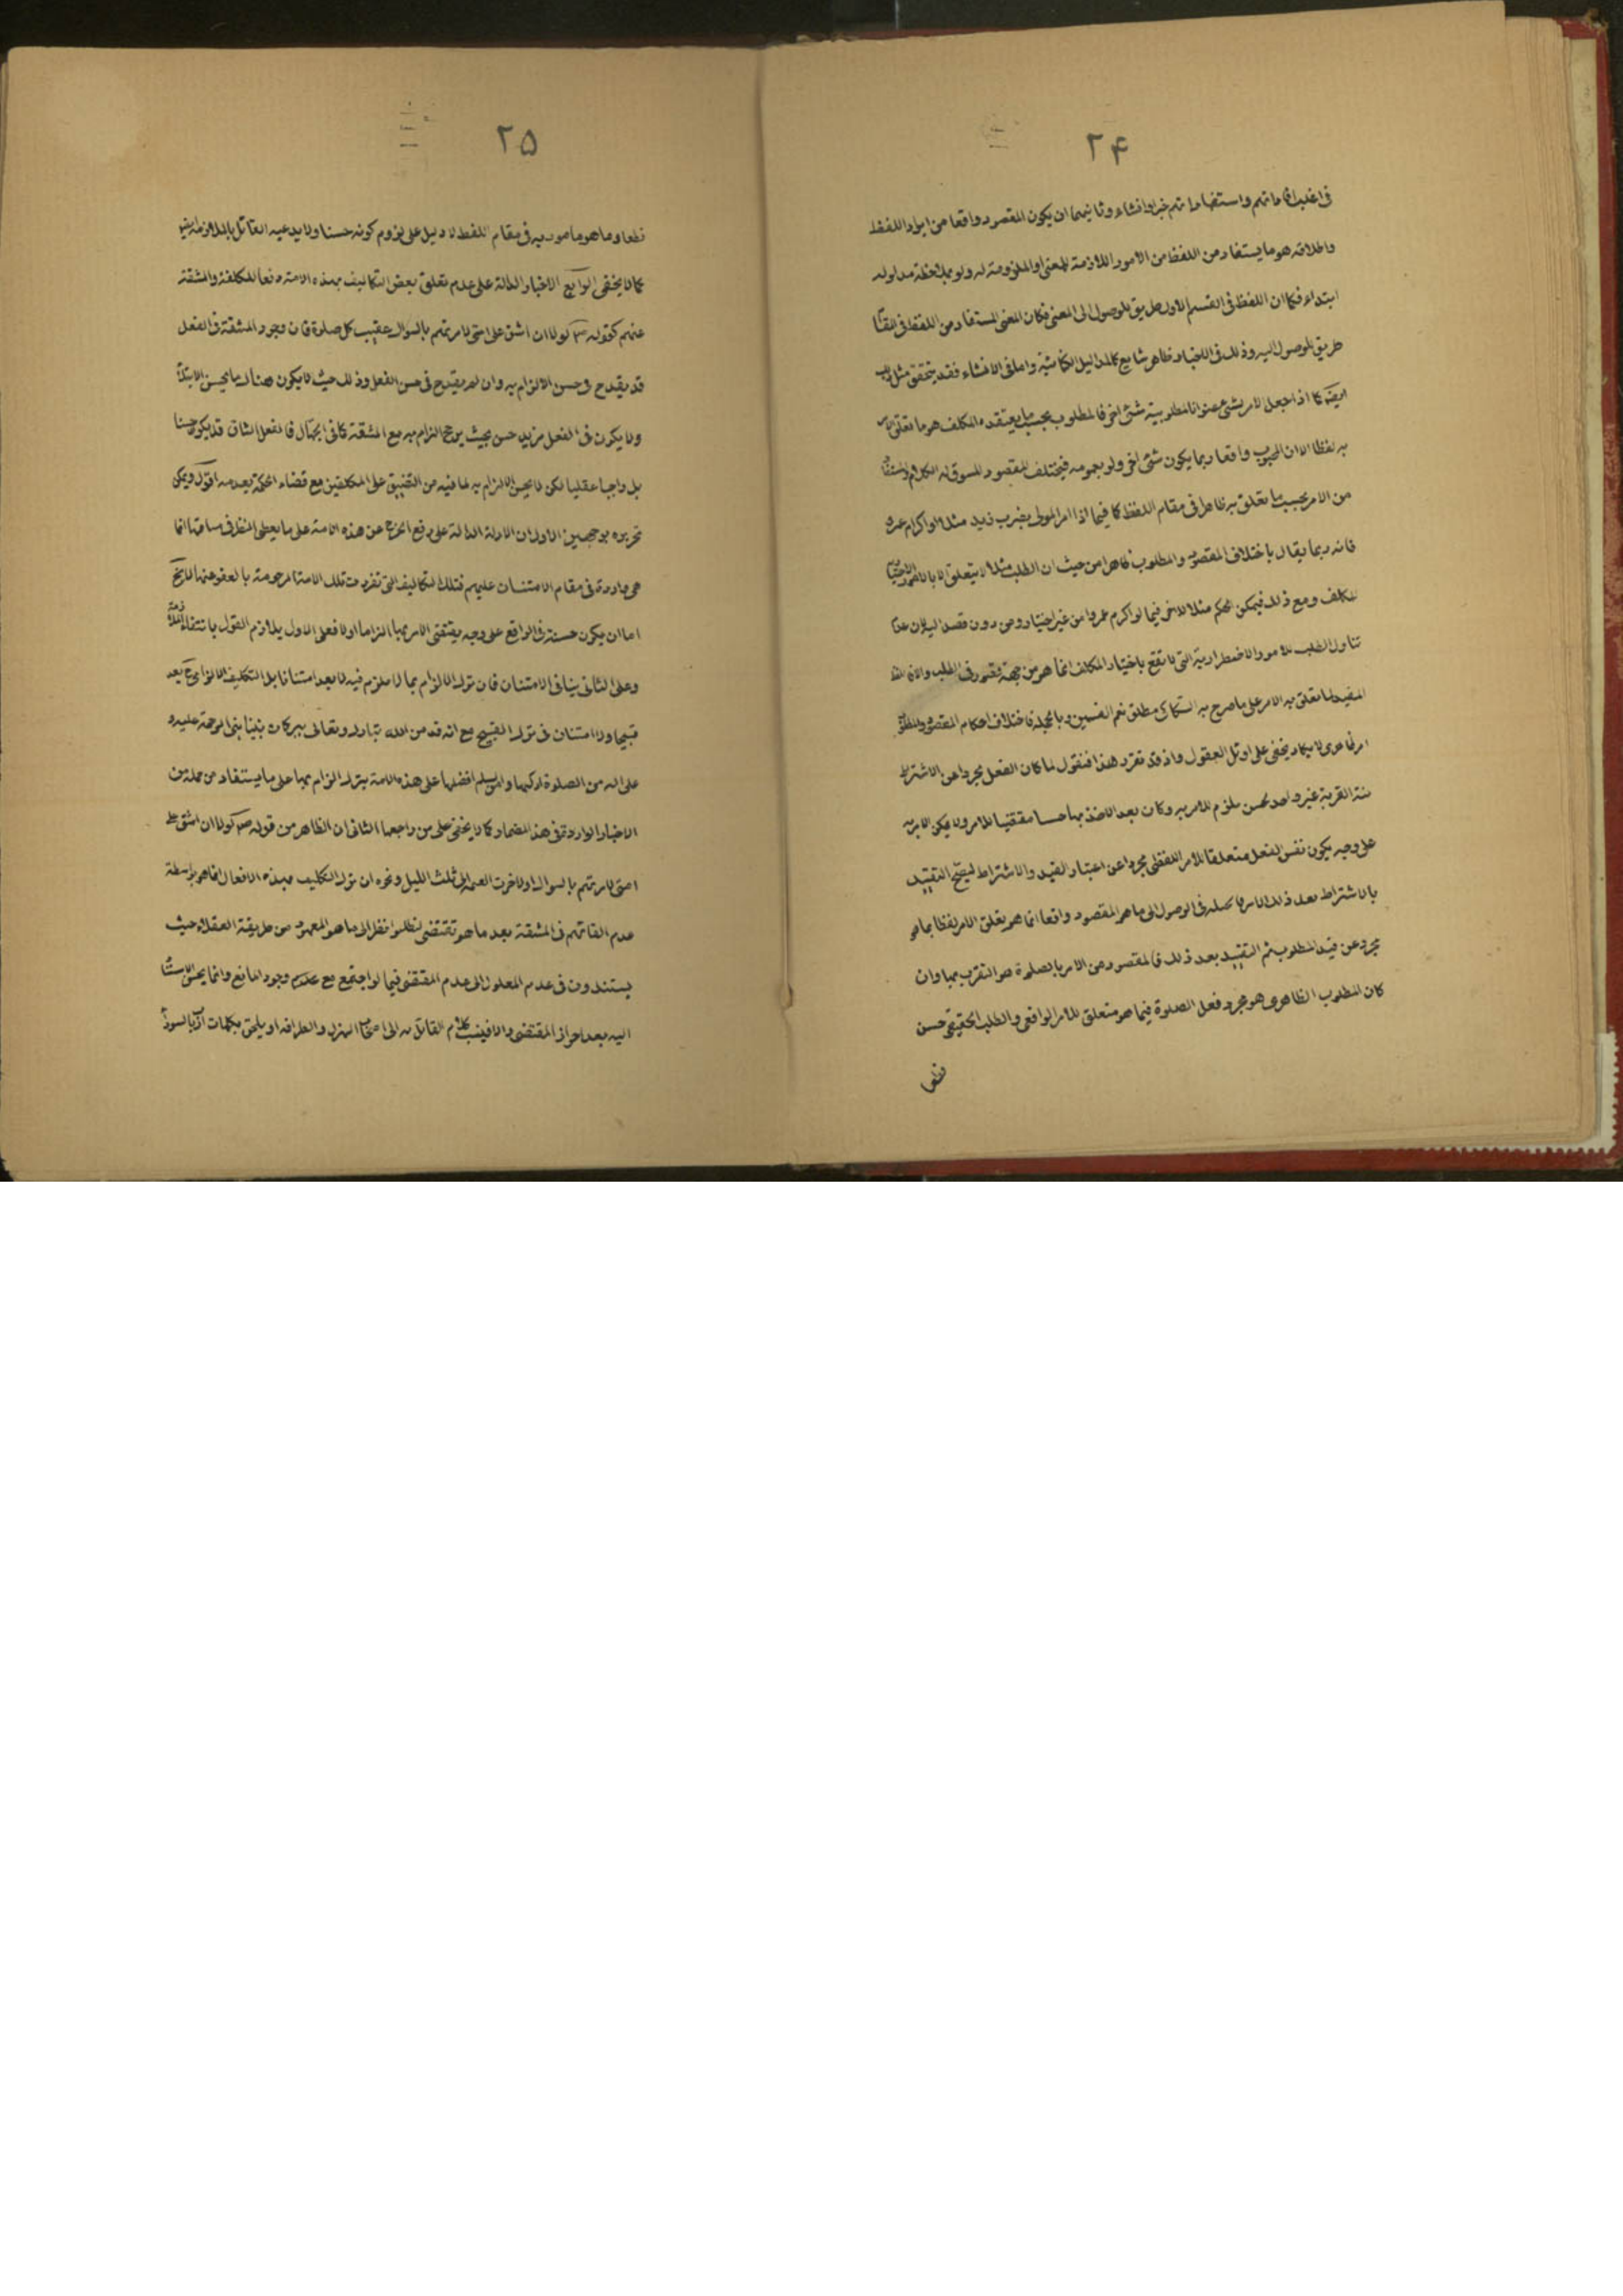 ۲۴
فی اغلب افاداتهم واستفاداتهم خبرا وانشاء وثانیهما ان یکون المقصود واقعا من ایراد اللفظ
واطلاقه هو ما یستفاد من اللفظ من الامور اللازمة للمعنی او الملزومة له ولو بملاحظة مدلوله
ابتداء فکما ان اللفظ فی القسم الاول طریق للوصول الی المعنی فکان المعنی المستفاد من اللفظ فی
طریق للوصول الیه وذلک فی الاخبار ظاهر شایع کالمدالیل الکنائیة واما فی الانشاء فقد یتحقق مثل ذلک
ایضا کما اذا جعل الامر بشئ عنوانا لمطلوبیة شئ اخر فالمطلوب بحسب ما یعتقده المکلف هو ما تعلق
به لفظا الا ان المحبوب واقعا ربما یکون شئ اخر ولو بعمومه فیختلف المقصود المسوق له الکلام
من الامر بحسب ما تعلق به ظاهرا فی مقام اللفظ کما فیما اذا امر المولی بضرب زید مثلا او اکرام عمرو
فانه ربما یقال باختلاف المقصود والمطلوب ظاهرا من حیث ان الطلب مثلا لا یتعلق الا بالامور
للمکلف ومع ذلک فیمکن الحکم مثلا للاخر فیما لو اکرم عمروا من غیر اختیار ومن دون قصد الیه لان عدم
تناول الطلب للامور الاضطراریة التی لا تقع باختیار المکلف انما هو من جهة قصور فی الطلب والا
المفید لما تعلق به الامر علی ما صرح به السکاکی مطلق نعم القسمین وبالجملة فاختلاف احکام المقصود والمطلوب
امر لا یکاد یخفی علی اوائل العقول واذ قد تقرر هذا فنقول لما کان الفعل مجردا عن الاشتراط
بنیة القربة غیر واجد لحسن ملزم للامر به وکان بعد الاخذ بها حسنا مقتضیا للامر ولا یمکن الامر به
علی وجه یکون نفس الفعل متعلقا للامر اللفظی مجردا عن اعتبار القید والاشتراط لیصح التقیید
بالاشتراط بعد ذلک الامر فما یحصله فی الوصول الی ما هو المقصود واقعا انما هو تعلق الامر لفظا بما هو
مجرد عن قید المطلوب ثم التقیید بعد ذلک فالمقصود من الامر بالصلوة هو التقرب بها وان
کان المطلوب الظاهری هو مجرد فعل الصلوة فیما هو متعلق للامر الواقعی والطلب الحقیقی حسن
قطعا
۲۵
قطعا وما هو مامور به فی مقام اللفظ لا دلیل علی لزوم کونه حسنا ولا یدعیه القائل بالملازمة
کما لا یخفی الرابع الاخبار الدالة علی عدم تعلق بعض التکالیف بهذه الامة رفعا للکلفة والمشقة
عنهم کقوله ص لولا ان اشق علی امتی لامرتهم بالسواک عقیب کل صلوة فان وجود المشقة فی الفعل
قد یقدح فی حسن الالزام به وان لم یقدح فی حسن الفعل وذلک حیث لا یکون هناک ما یحسن
ولا یکون فی الفعل مزید حسن بحیث یرجح الزام به مع المشقة کما فی الجهاد فالفعل الشاق قد یکون حسنا
بل واجبا عقلیا لکن لا یحسن الالزام به لما فیه من التضییق علی المکلفین مع قضاء الحکمة بعدمه اقول ویمکن
تحریره بوجهین الاول ان الادلة الدالة علی رفع الحرج عن هذه الامة علی ما یعطی النظر فی مساقها انما
هی واردة فی مقام الامتنان علیهم فتلک التکالیف التی تفردت تلک الامة المرحومة بالعفو عنها
اما ان یکون حسنة فی الواقع علی وجه یقتضی الامر بها الزاما اولا فعلی الاول یلازم القول بانتفاء الملازمة
وعلی الثانی ینافی الامتنان فان ترک الالزام بما لا ملزم فیه لا یعد امتنانا بل التکلیف الالزامی ح یعد
قبیحا ولا امتنان فی ترک القبیح مع انه قد من الله تبارک وتعالی ببرکات نبینا نبی الرحمة علیه و
علی اله من الصلوة ازکیها والتسلیم افضلها علی هذه الامة بترک الزام بها علی ما یستفاد من جملة من
الاخبار الواردة فی هذا المضمار کما لا یخفی علی من راجعها الثانی ان الظاهر من قوله ص لولا ان اشق علی
امتی لامرتهم بالسواک او لاخرت العتمة الی ثلث اللیل ونحوه ان ترک التکلیف بهذه الافعال انما هو بواسطة
عدم القائهم فی المشقة بعد ما هو تقتضی لظاهر نظرا الی ما هو المعهود من طریقة العقلاء حیث
یستندون فی عدم المعلول الی عدم المقتضی فیما لو اجتمع مع عدمه وجود المانع وانما یحسن الاستناد
الیه بعد احراز المقتضی والا فینسب کلام القائل به الی اصحاب الهزل والظرافة او یلحق بکلمات